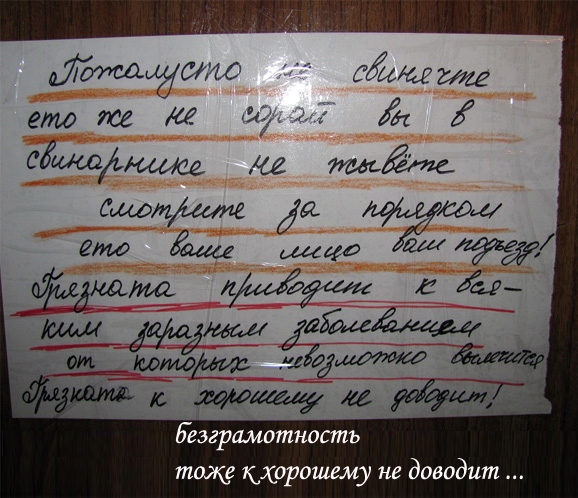 Пожалусто не свинячте
ето же не сорай вы в
свинарнике не жывёте
смотрите за порядком
ето ваше лицо ваш подъезд!
Грязната приводит к вся-
ким заразным заболеванием
от которых невозможно вылечится
Грязната к хорошему не доводит!
безграмотность
тоже к хорошему не доводит ...